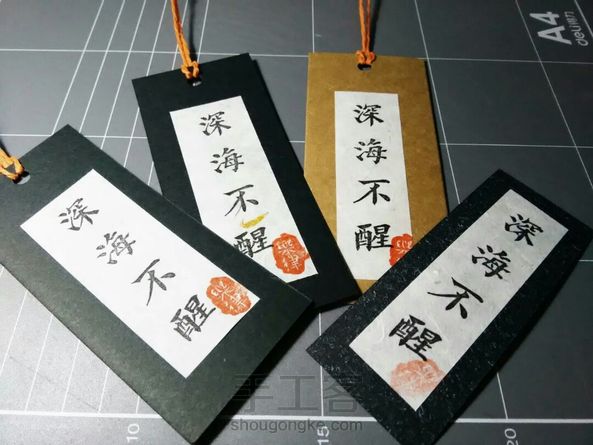 深海不醒
深海不醒
深海不醒
深海不醒
A4
deli
10
15
20
手工客
shougongke.com